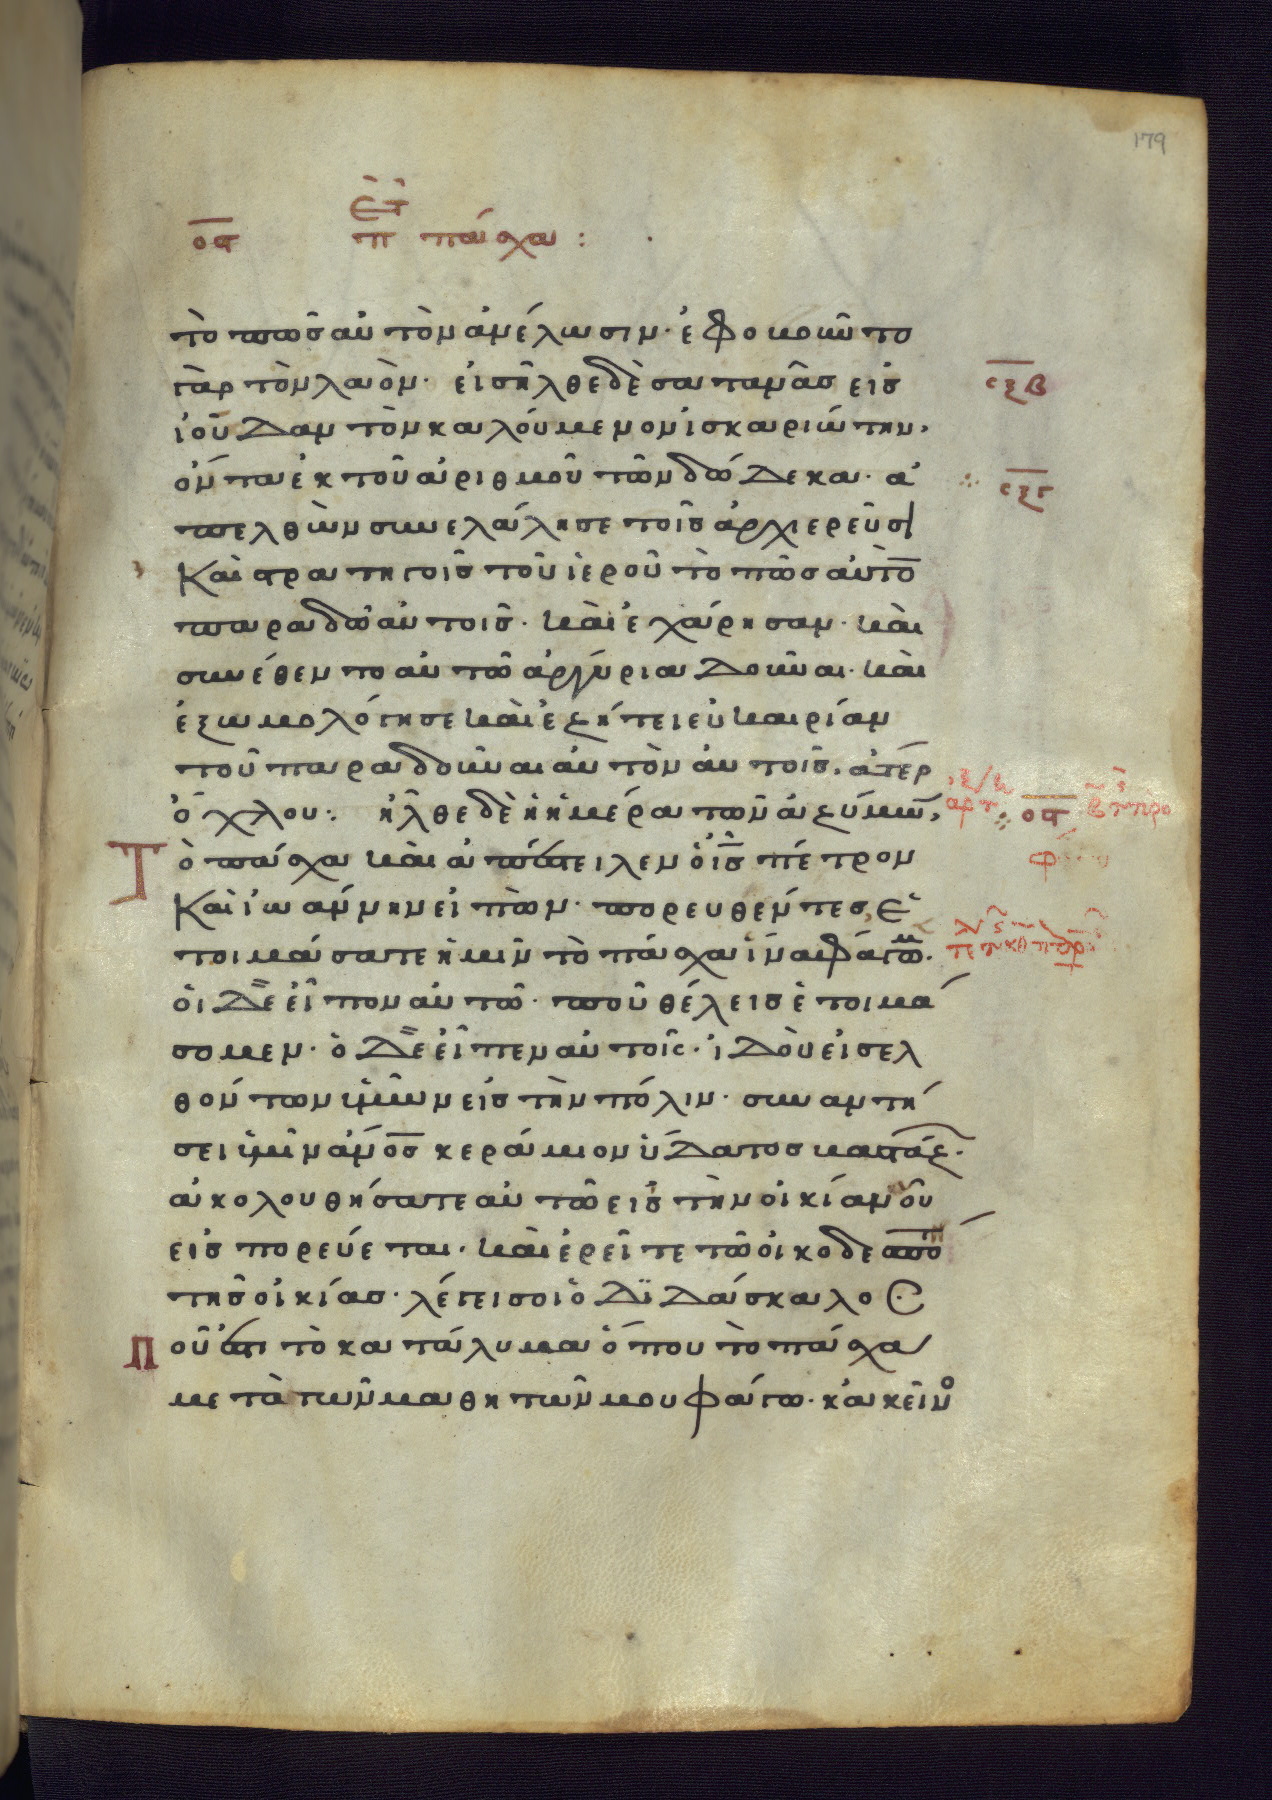 179
ος π πάσχα :
τὸ πῶς αὐτὸν ἀνέλωσιν· ἐφοβοῦντο
γὰρ τὸν λαὸν· εἰσῆλθε δὲ σατανᾶς εἰς
σξβ
ἰούδαν τὸν καλούμενον ἰσκαριώτην,
ὄντα ἐκ τοῦ ἀριθμοῦ τῶν δώδεκα· ἀ
σξγ
πελθὼν συνελάλησε τοῖς ἀρχιερεῦσι
καὶ στρατηγοῖς τοῦ ἱεροῦ τὸ πῶς αὐτὸ
παραδῶ αὐτοῖς· καὶ ἐχάρησαν· καὶ
συνέθεντο αὐτῶ ἀργύρια δοῦναι· καὶ
ἐξωμολόγησε καὶ ἐζήτει εὐκαιρίαν
τοῦ παραδοῦναι αὐτὸν αὐτοῖς, ἄτερ
ὄχλου: ἦλθε δὲ ἡ ἡμέρα τῶν ἀζύμω,
ος
Τὸ πάσχα καὶ ἀπέστειλεν ὁ ις πέτρον
καὶ ἰωάννην εἰπὼν· πορευθέντες, ἑ
τοιμάσατε ἡμῖν τὸ πάσχα ἵνα φάγωμ·
οἱ δὲ εἶπον αὐτῶ· ποῦ θέλεις ἑτοιμά
σομεν· ὁ δὲ εἶπεν αὐτοῖς· ἰδοὺ εἰσελ
θόντων ὑμῶν εἰς τὴν πόλιν· συναντή
σει ὑμῖν ἄνος κεράμιον ὕδατος βαστάζ·
ἀκολουθήσατε αὐτῶ εἰς τὴν οἰκίαν οὗ
εἰσπορεύεται· καὶ ἐρεῖτε τῶ οἰκοδεσπό
τῆς οἰκίας· λέγει σοι ὁ διδάσκαλος
Ποῦ ἐστι τὸ κατάλυμα ὅπου τὸ πάσχα
μετὰ τῶν μαθητῶν μου φάγω· κἀκεῖνο